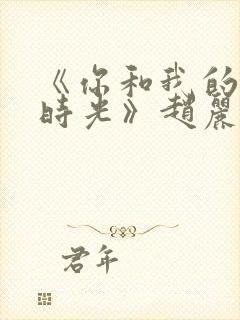 《你和我的
時光》趙麗
君年